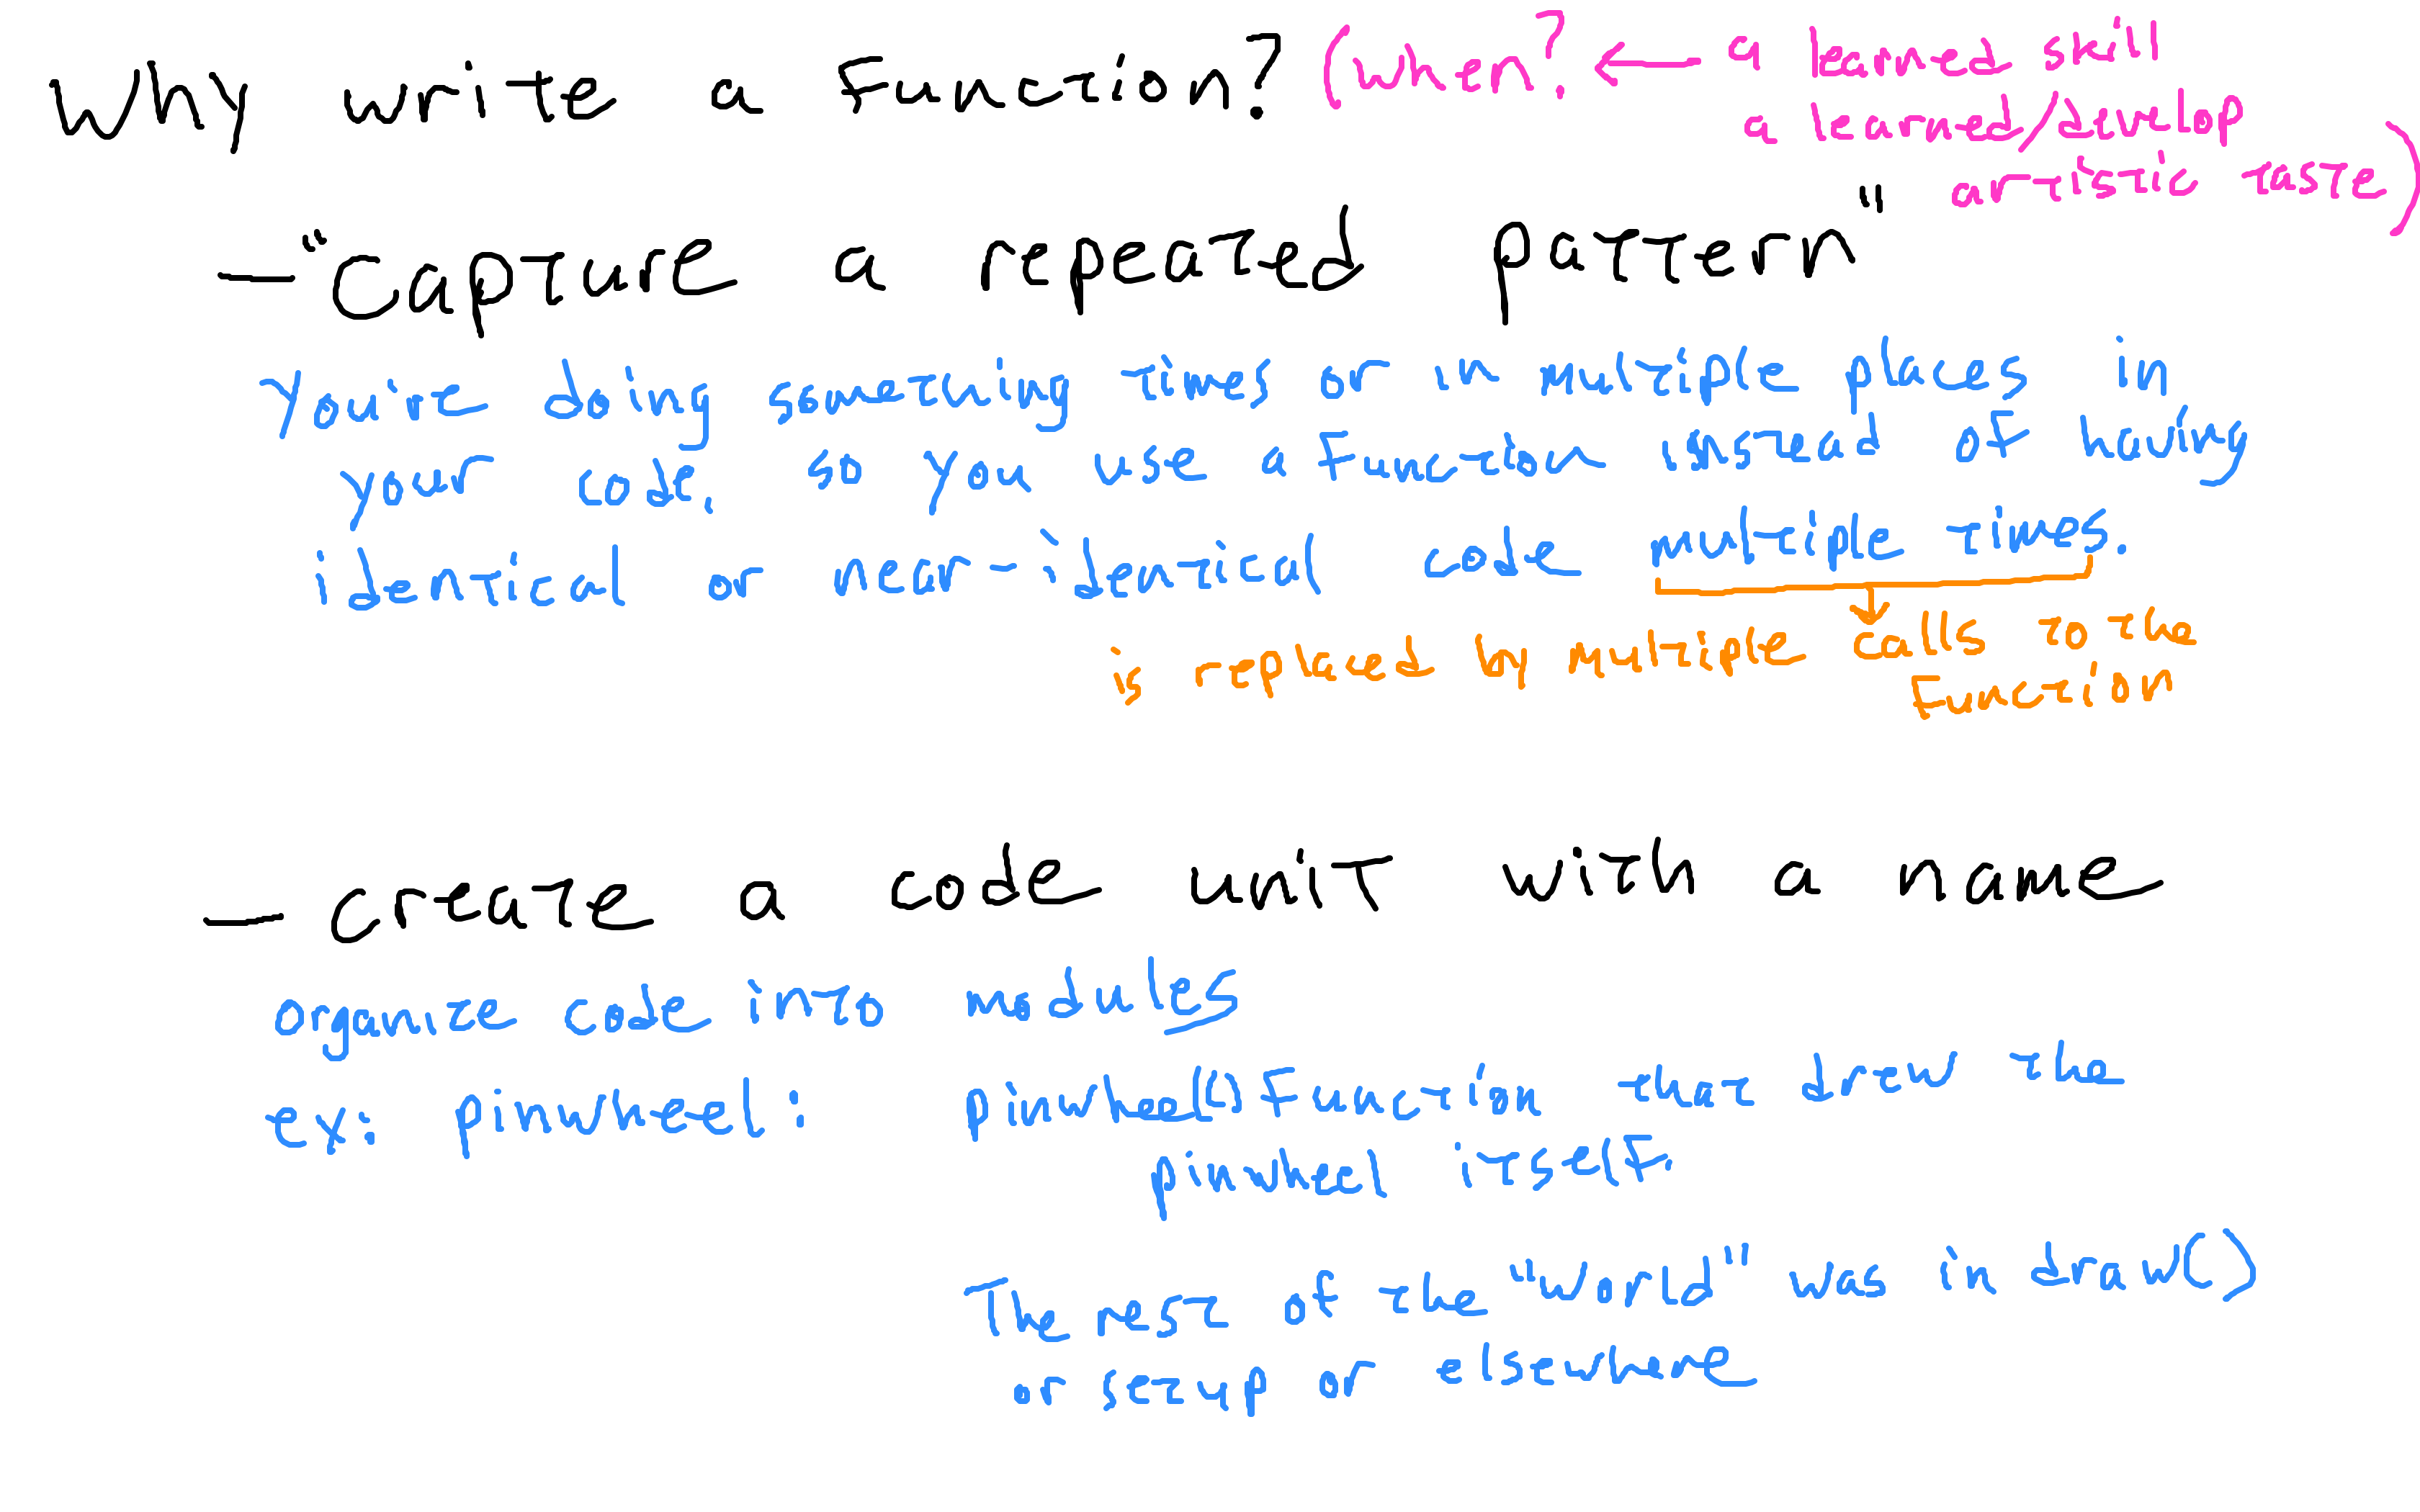 Why write a function? (when? ← a learned skill
a learned/develop
artistic taste)
— "Capture a repeated pattern"
You're doing something times or in multiple places in
your code, so you use a function instead of having
identical or near-identical code multiple times.
is replaced by multiple calls to the
function
— create a code unit with a name
organize code into modules
ex: pinwheel: pinwheel() function that drew the
pinwheel itself.
The rest of the "world" was in draw()
or setup or elsewhere